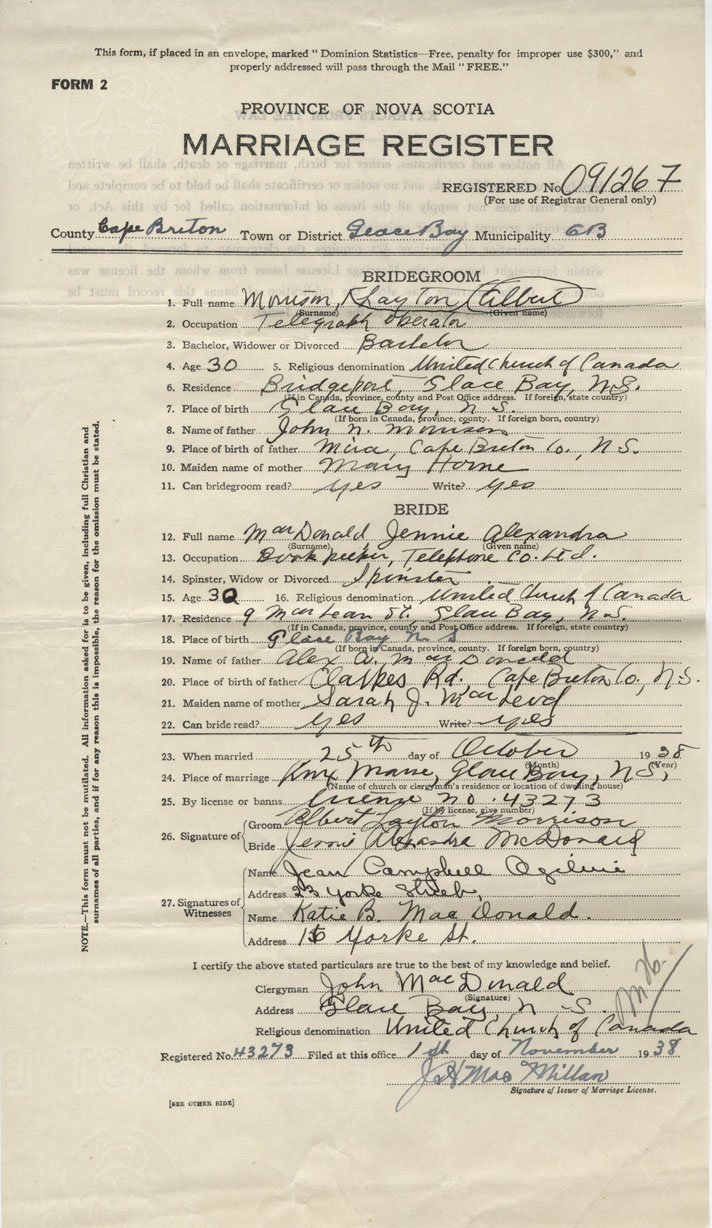 This form, if placed in an envelope, marked "Dominion Statistics—Free, penalty for improper use $300," and
properly addressed will pass through the Mail "FREE."
FORM 2
PROVINCE OF NOVA SCOTIA
MARRIAGE REGISTER
REGISTERED No. 091267
(For use of Registrar General only)
County Cape Breton Town or District Glace Bay Municipality CB
BRIDEGROOM
1. Full name Morrison, Layton (Albert)
(Surname) (Given name)
2. Occupation Telegraph Operator
3. Bachelor, Widower or Divorced Bachelor
4. Age 30 5. Religious denomination United Church of Canada
6. Residence Bridgeport, Glace Bay, N.S.
(If in Canada, province, county and Post Office address. If foreign, state country)
7. Place of birth Glace Bay, N.S.
(If born in Canada, province, county. If foreign born, country)
8. Name of father John N. Morrison
9. Place of birth of father Mira, Cape Breton Co., N.S.
10. Maiden name of mother Mary Horne
11. Can bridegroom read? yes Write? yes
BRIDE
12. Full name MacDonald Jennie Alexandra
(Surname) (Given name)
13. Occupation Bookkeeper, Telephone Co. Ltd.
14. Spinster, Widow or Divorced Spinster
15. Age 30 16. Religious denomination United Church of Canada
17. Residence 9 MacLean St., Glace Bay, N.S.
(If in Canada, province, county and Post Office address. If foreign, state country)
18. Place of birth Glace Bay N S
(If born in Canada, province, county. If foreign born, country)
19. Name of father Alex A. MacDonald
20. Place of birth of father Clarkes Rd. Cape Breton Co., N.S.
21. Maiden name of mother Sarah J. MacLeod
22. Can bride read? yes Write? yes
23. When married 25th day of October 1938
(Month) (Year)
24. Place of marriage Knox Manse, Glace Bay, N.S.
(Name of church or clergyman's residence or location of dwelling house)
25. By license or banns License no. 43273
(If by license, give number)
26. Signature of
Groom Albert Layton Morrison
Bride Jennie Alexandra McDonald
27. Signatures of Witnesses
Name Jean Campbell Ogilvie
Address 23 Yorke Street,
Name Katie B. MacDonald.
Address 15 Yorke St.
I certify the above stated particulars are true to the best of my knowledge and belief.
Clergyman John MacDonald
(Signature)
Address Glace Bay, N.S.
Religious denomination United Church of Canada
Registered No. 43273 Filed at this office 1st day of November 1938
J H MacMillan
Signature of Issuer of Marriage License.
[SEE OTHER SIDE]
NOTE.—This form must not be mutilated. All information asked for is to be given, including full Christian and
surnames of all parties, and if for any reason this is impossible, the reason for the omission must be stated.